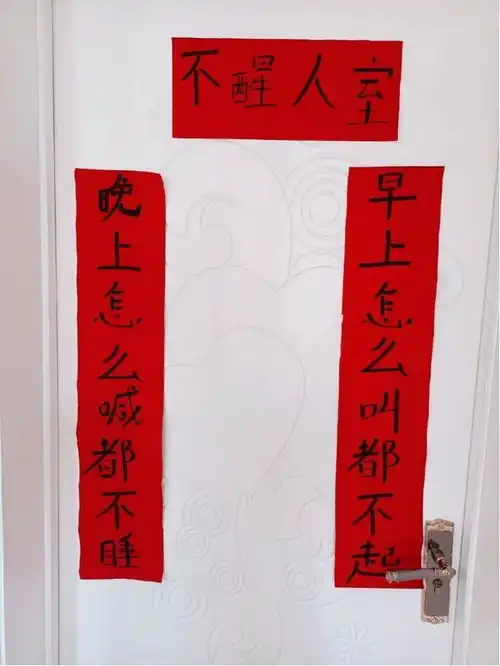 不醒人室
早上怎么叫都不起
晚上怎么喊都不睡